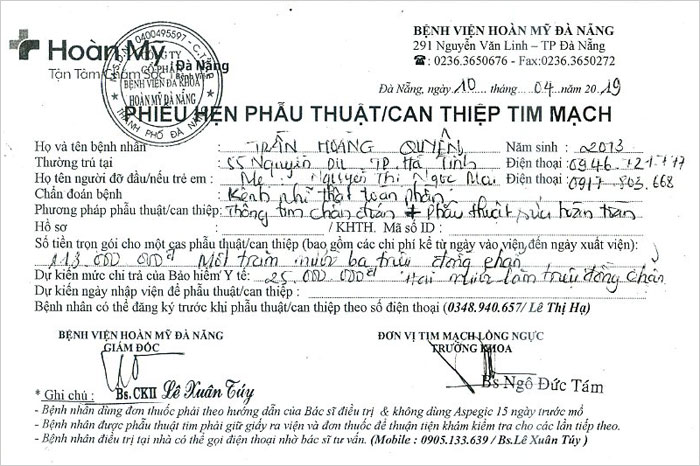 BỆNH VIỆN HOÀN MỸ ĐÀ NẴNG
291 Nguyễn Văn Linh – TP Đà Nẵng
☎: 0236.3650676 - Fax:0236.3650272
Hoàn Mỹ
Đà Nẵng
Tận Tâm Chăm Sóc
Bệnh viện
M.S.D.N: 0400495597 - C.T.C.P
CÔNG TY
CỔ PHẦN
BỆNH VIỆN ĐA KHOA
HOÀN MỸ ĐÀ NẴNG
THÀNH PHỐ ĐÀ NẴNG
Đà Nẵng, ngày 10 tháng 04 năm 2019
PHIẾU HẸN PHẪU THUẬT/CAN THIỆP TIM MẠCH
Họ và tên bệnh nhân : TRẦN HOÀNG QUYÊN Năm sinh : 2013
Thường trú tại : 55 Nguyễn Du TP Hà Tĩnh Điện thoại :0946.721.717
Họ tên người đỡ đầu/nếu trẻ em : Mẹ: Nguyễn Thị Ngọc Mai Điện thoại :0917.803.668
Chẩn đoán bệnh : Kênh nhĩ thất toàn phần
Phương pháp phẫu thuật/can thiệp: Thông tim chẩn đoán + Phẫu thuật sửa hoàn toàn
Hồ sơ : / KHTH. Mã số ID :
Số tiền trọn gói cho một cas phẫu thuật/can thiệp (bao gồm các chi phí kể từ ngày vào viện đến ngày xuất viện):
113.000.000đ Một trăm mười ba triệu đồng chẵn
Dự kiến mức chi trả của Bảo hiểm Y tế: 25.000.000đ Hai mươi lăm triệu đồng chẵn
Dự kiến ngày nhập viện để phẫu thuật/can thiệp :
Bệnh nhân có thể đăng ký trước khi phẫu thuật/can thiệp theo số điện thoại (0348.940.657/ Lê Thị Hạ)
BỆNH VIỆN HOÀN MỸ ĐÀ NẴNG
GIÁM ĐỐC
ĐƠN VỊ TIM MẠCH LỒNG NGỰC
TRƯỞNG KHOA
Bs.CKII Lê Xuân Túy
Bs Ngô Đức Tám
* Ghi chú :
- Bệnh nhân dùng đơn thuốc phải theo hướng dẫn của Bác sĩ điều trị & không dùng Aspegic 15 ngày trước mổ
- Bệnh nhân được phẫu thuật tim phải giữ giấy ra viện và đơn thuốc để thuận tiện khám kiểm tra cho các lần tiếp theo.
- Bệnh nhân điều trị tại nhà có thể gọi điện thoại nhờ bác sĩ tư vấn. (Mobile : 0905.133.639 / Bs.Lê Xuân Túy )